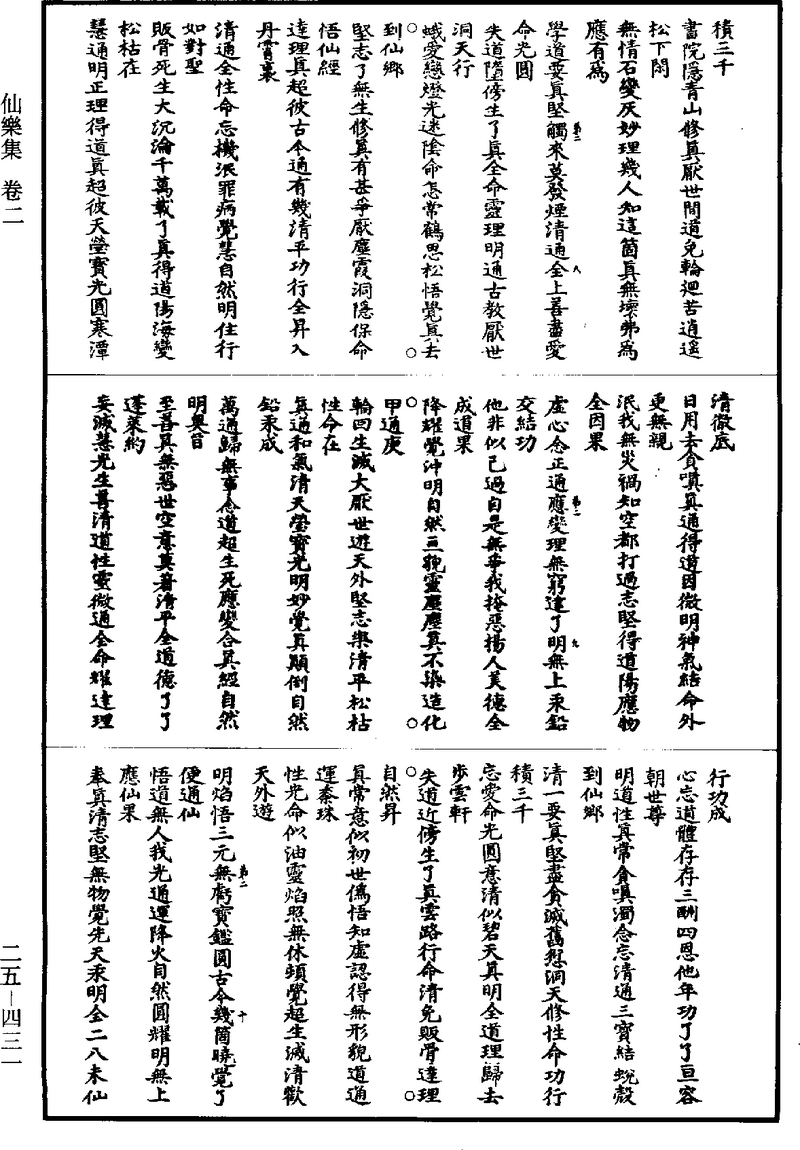 仙樂集 卷二
二五—四三一
積三千
書院隱青山修眞厭世間道免輪迴苦逍遥
松下閑
無情石變灰妙理幾人知這箇眞無壞弗爲
應有爲
學道要眞堅觸來莫發煙清通全上善盡愛
命光圓
失道墮傍生了眞全命靈理明通古教厭世
洞天行
蛾愛戀燈光迷陰命怎常鶴思松悟覺眞去
到仙鄉
堅志了無生修眞有甚爭厭塵霞洞隱保命
悟仙經
達理眞超彼古今通有幾清平功行全昇入
丹霄裏
清通全性命忘機泯罪病覺慧自然明住行
如對聖
販骨死生大沉淪千萬載了眞得道陽海變
松枯在
慧通明正理得道眞超彼天瑩寶光圓寒潭
清徹底
日用去貪嗔眞通得道因微明神氣結命外
更無親
泯我無災禍知空都打過志堅得道陽應物
全因果
虛心念正通應變理無窮達了明無上汞鉛
交結功
他非似己過自是無爭我掩惡揚人美德全
成道果
降耀覺沖明自然亘貌靈塵塵眞不染造化
甲通庚
輪回生滅大厭世遊天外堅志樂清平松枯
性命在
氣通和氣清天瑩寶光明妙覺眞顛倒自然
鉛汞成
萬通歸無事念道超生死應變合眞經自然
明奧旨
至善眞無惡世空意莫著清平全道德了了
蓬萊約
妄滅慧光生善清道性靈微通全命耀達理
行功成
心忘道體存存三酬四恩他年功了了亘容
朝世尊
明道性眞常貪嗔濁念忘清通三寶結蛻殼
到仙鄉
清一要眞堅盡貪滅舊愆洞天修性命功行
積三千
忘愛命光圓意清似碧天眞明全道理歸去
步雲軒
失道近傍生了眞雲路行命清免販骨達理
自然昇
眞常意似初世僞悟知虛認得無形貌道通
運黍珠
性光命似油靈焰照無休頓覺超生滅清歡
天外遊
明焰悟三元無虧寶鑑圓古今幾箇曉覺了
便通仙
悟道無人我光通運降火自然圓耀明無上
應仙果
奉眞清志堅無物覺先天汞明全二八未仙